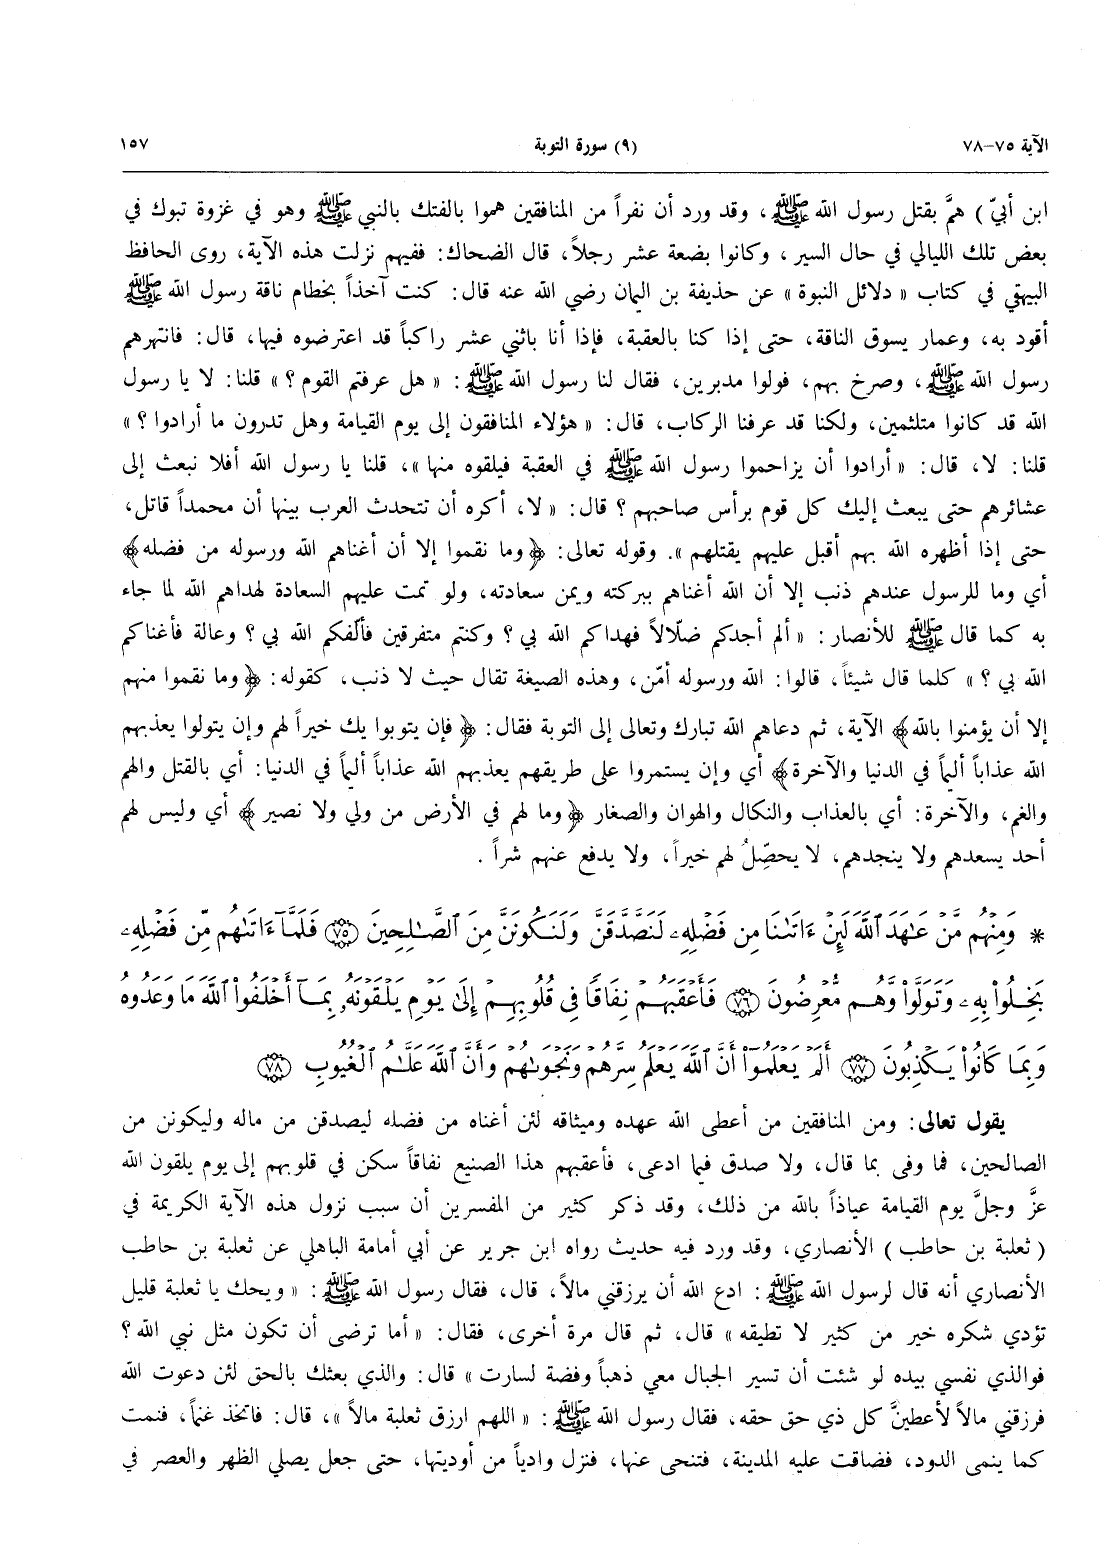 الآية ٧٥–٧٨ (٩) سورة التوبة ١٥٧
ابن أبيّ ) همَّ بقتل رسول الله ﷺ، وقد ورد أن نفراً من المنافقين هموا بالفتك بالنبي ﷺ وهو في غزوة تبوك في
بعض تلك الليالي في حال السير ، وكانوا بضعة عشر رجلاً، قال الضحاك: ففيهم نزلت هذه الآية، روى الحافظ
البيهقي في كتاب « دلائل النبوة » عن حذيفة بن اليمان رضي الله عنه قال: كنت آخذاً بخطام ناقة رسول الله ﷺ
أقود به، وعمار يسوق الناقة، حتى إذا كنا بالعقبة، فإذا أنا باثني عشر راكباً قد اعترضوه فيها، قال: فانتهرهم
رسول الله ﷺ، وصرخ بهم، فولوا مدبرين، فقال لنا رسول الله ﷺ: « هل عرفتم القوم ؟ » قلنا: لا يا رسول
الله قد كانوا متلثمين، ولكنا قد عرفنا الركاب، قال: « هؤلاء المنافقون إلى يوم القيامة وهل تدرون ما أرادوا ؟ »
قلنا: لا، قال: « أرادوا أن يزاحموا رسول الله ﷺ في العقبة فيلقوه منها »، قلنا يا رسول الله أفلا نبعث إلى
عشائرهم حتى يبعث إليك كل قوم برأس صاحبهم ؟ قال: « لا، أكره أن تتحدث العرب بينها أن محمداً قاتل،
حتى إذا أظهره الله بهم أقبل عليهم يقتلهم ». وقوله تعالى: ﴿وما نقموا إلا أن أغناهم الله ورسوله من فضله﴾
أي وما للرسول عندهم ذنب إلا أن الله أغناهم ببركته ويمن سعادته، ولو تمت عليهم السعادة لهداهم الله لما جاء
به كما قال ﷺ للأنصار: « ألم أجدكم ضلّالاً فهداكم الله بي ؟ وكنتم متفرقين فألّفكم الله بي ؟ وعالة فأغناكم
الله بي ؟ » كلما قال شيئاً، قالوا: الله ورسوله أمّن، وهذه الصيغة تقال حيث لا ذنب، كقوله: ﴿وما نقموا منهم
إلا أن يؤمنوا بالله﴾ الآية، ثم دعاهم الله تبارك وتعالى إلى التوبة فقال: ﴿فإن يتوبوا يك خيراً لهم وإن يتولوا يعذبهم
الله عذاباً أليماً في الدنيا والآخرة﴾ أي وإن يستمروا على طريقهم يعذبهم الله عذاباً أليماً في الدنيا: أي بالقتل والهم
والغم، والآخرة: أي بالعذاب والنكال والهوان والصغار ﴿وما لهم في الأرض من ولي ولا نصير﴾ أي وليس لهم
أحد يسعدهم ولا ينجدهم، لا يحصِّلُ لهم خيراً، ولا يدفع عنهم شراً .
* وَمِنْهُم مَّنْ عَـٰهَدَ ٱللَّهَ لَئِنْ ءَاتَىٰنَا مِن فَضْلِهِۦ لَنَصَّدَّقَنَّ وَلَنَكُونَنَّ مِنَ ٱلصَّـٰلِحِينَ ﴿٧٥﴾ فَلَمَّآ ءَاتَىٰهُم مِّن فَضْلِهِۦ
بَخِلُوا۟ بِهِۦ وَتَوَلَّوا۟ وَّهُم مُّعْرِضُونَ ﴿٧٦﴾ فَأَعْقَبَهُمْ نِفَاقًا فِى قُلُوبِهِمْ إِلَىٰ يَوْمِ يَلْقَوْنَهُۥ بِمَآ أَخْلَفُوا۟ ٱللَّهَ مَا وَعَدُوهُ
وَبِمَا كَانُوا۟ يَكْذِبُونَ ﴿٧٧﴾ أَلَمْ يَعْلَمُوٓا۟ أَنَّ ٱللَّهَ يَعْلَمُ سِرَّهُمْ وَنَجْوَىٰهُمْ وَأَنَّ ٱللَّهَ عَلَّـٰمُ ٱلْغُيُوبِ ﴿٧٨﴾
يقول تعالى: ومن المنافقين من أعطى الله عهده وميثاقه لئن أغناه من فضله ليصدقن من ماله وليكونن من
الصالحين، فما وفى بما قال، ولا صدق فيما ادعى، فأعقبهم هذا الصنيع نفاقاً سكن في قلوبهم إلى يوم يلقون الله
عزَّ وجلَّ يوم القيامة عياذاً بالله من ذلك، وقد ذكر كثير من المفسرين أن سبب نزول هذه الآية الكريمة في
( ثعلبة بن حاطب ) الأنصاري، وقد ورد فيه حديث رواه ابن جرير عن أبي أمامة الباهلي عن ثعلبة بن حاطب
الأنصاري أنه قال لرسول الله ﷺ: ادع الله أن يرزقني مالاً، قال، فقال رسول الله ﷺ: « ويحك يا ثعلبة قليل
تؤدي شكره خير من كثير لا تطيقه » قال، ثم قال مرة أخرى، فقال: « أما ترضى أن تكون مثل نبي الله؟
فوالذي نفسي بيده لو شئت أن تسير الجبال معي ذهباً وفضة لسارت » قال: والذي بعثك بالحق لئن دعوت الله
فرزقني مالاً لأعطينَّ كل ذي حق حقه، فقال رسول الله ﷺ: « اللهم ارزق ثعلبة مالاً »، قال: فاتخذ غنماً، فنمت
كما ينمى الدود، فضاقت عليه المدينة، فتنحى عنها، فنزل وادياً من أوديتها، حتى جعل يصلي الظهر والعصر في